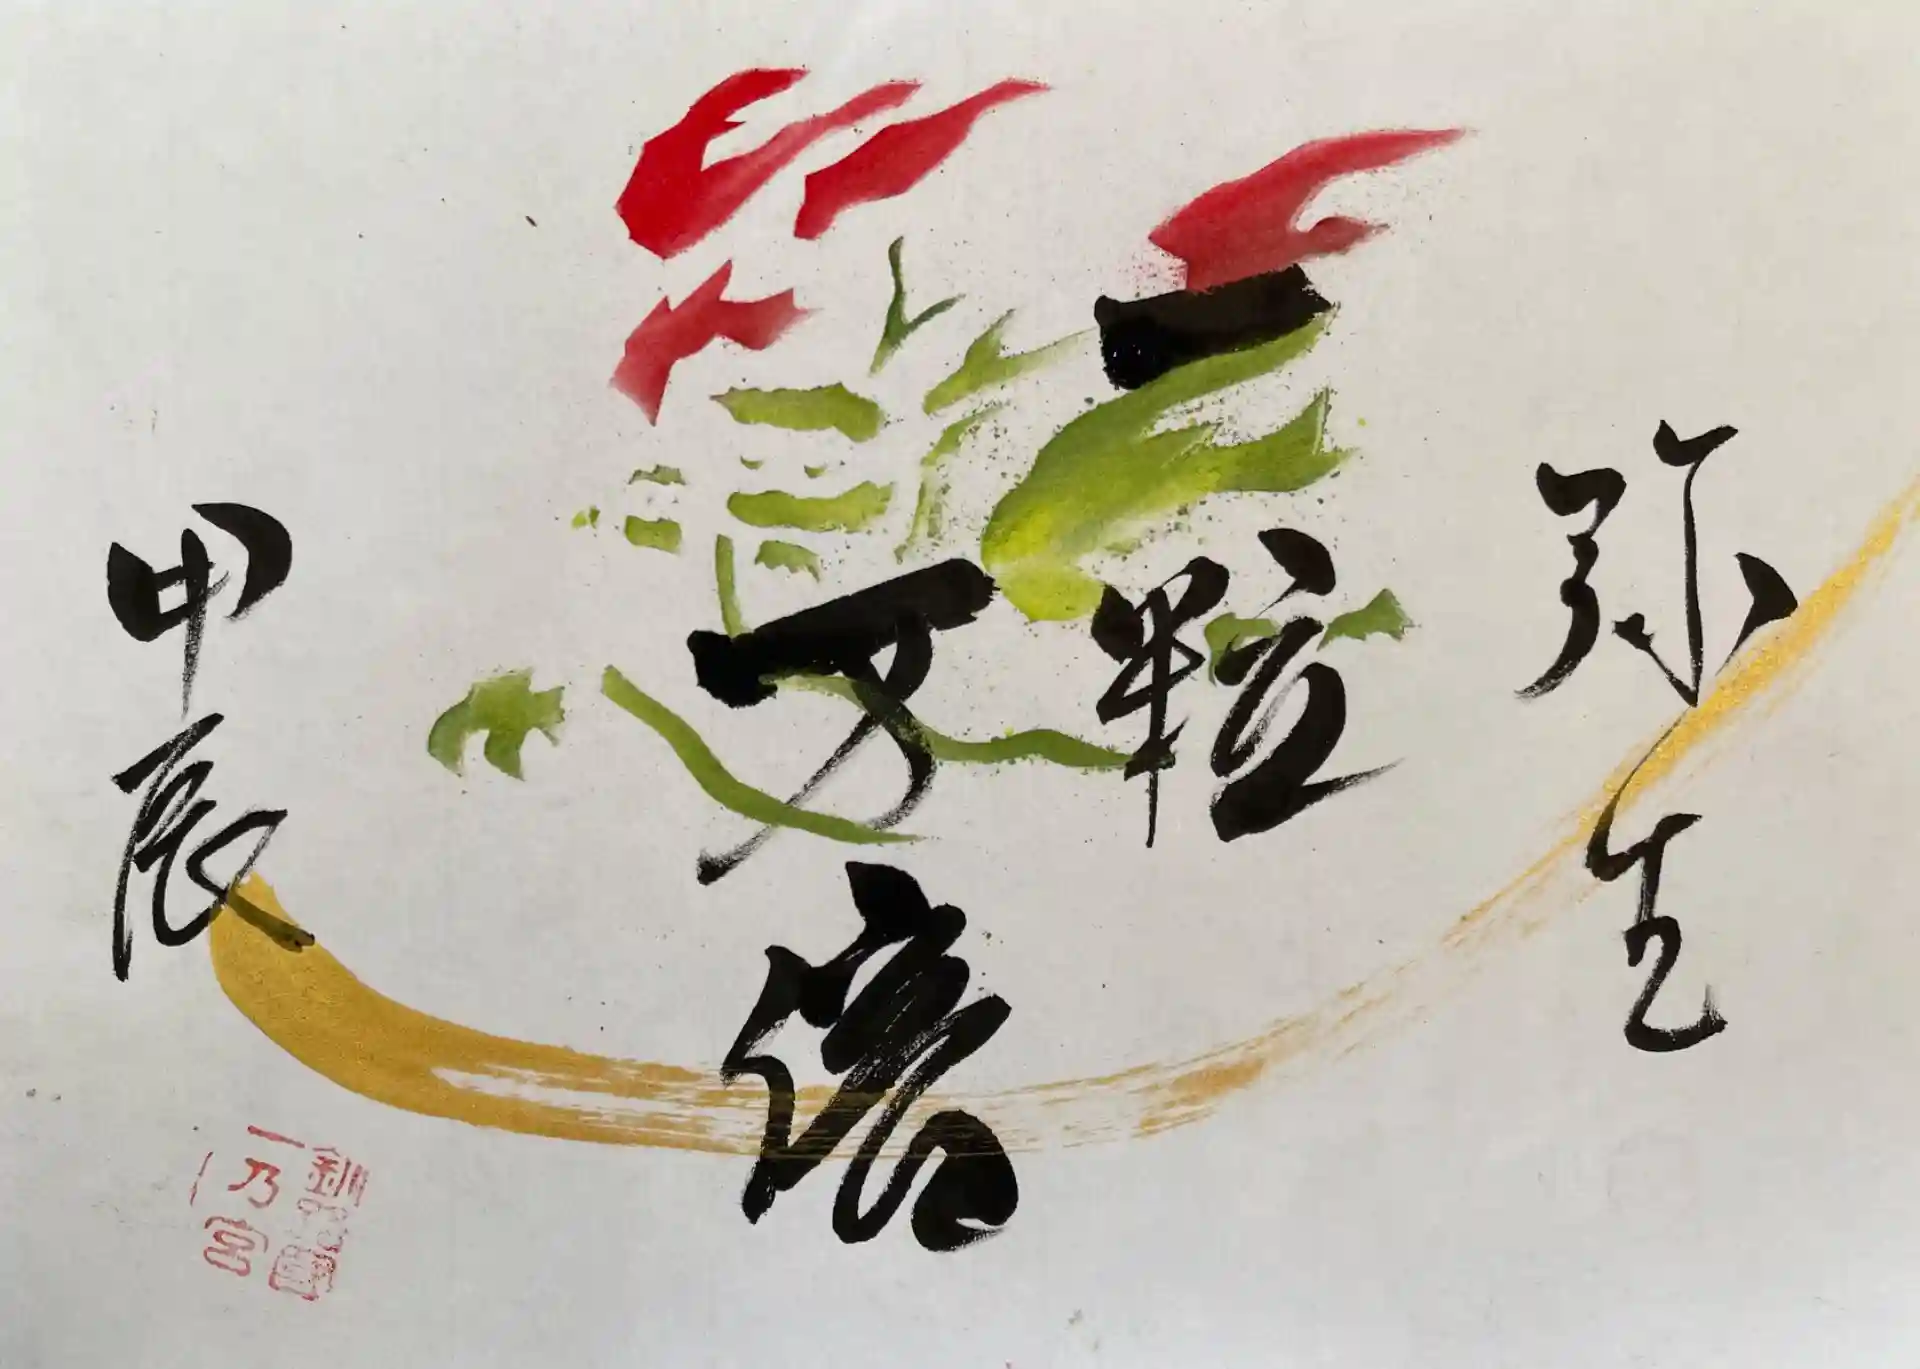 弥生
一粒
万倍
甲辰
一乃宮